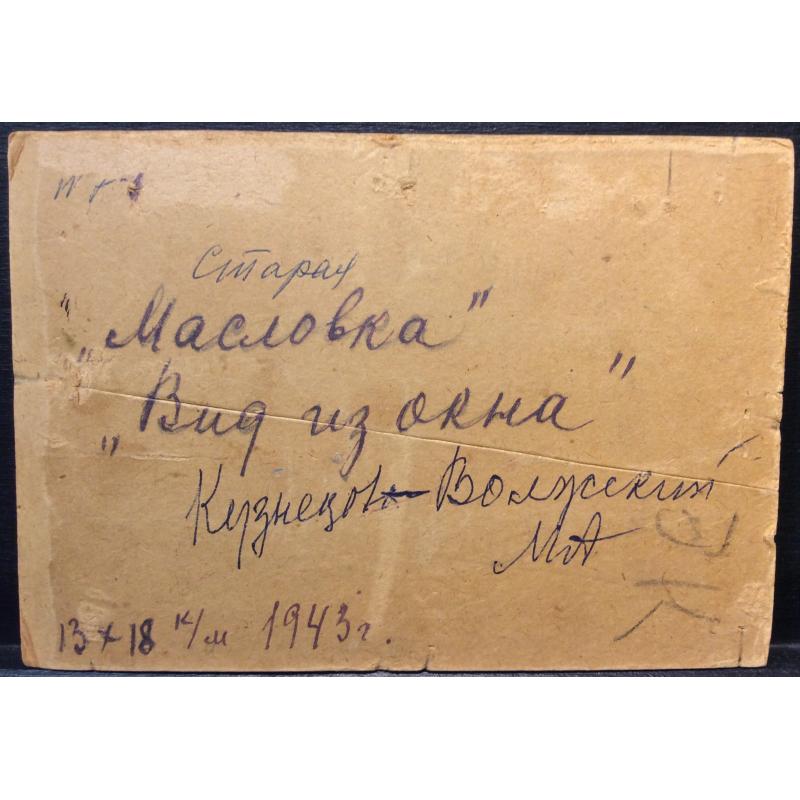 Старая
"„Масловка"
„Вид из окна"
Кузнецов-Волжский
МА
13 х 18 к/м 1943 г.